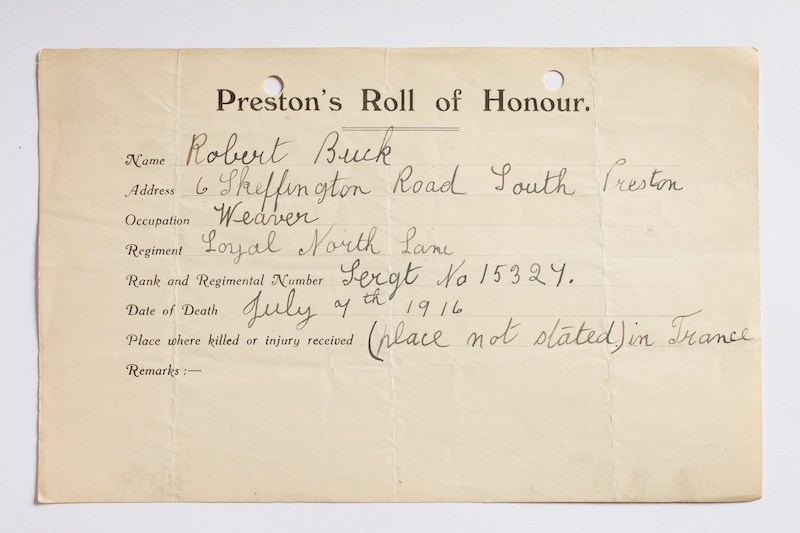 Preston's Roll of Honour.
Name Robert Buck
Address 6 Skeffington Road South Preston
Occupation Weaver
Regiment Loyal North Lanc
Rank and Regimental Number Sergt No 15327.
Date of Death July 7th 1916
Place where killed or injury received (place not stated) in France
Remarks :—